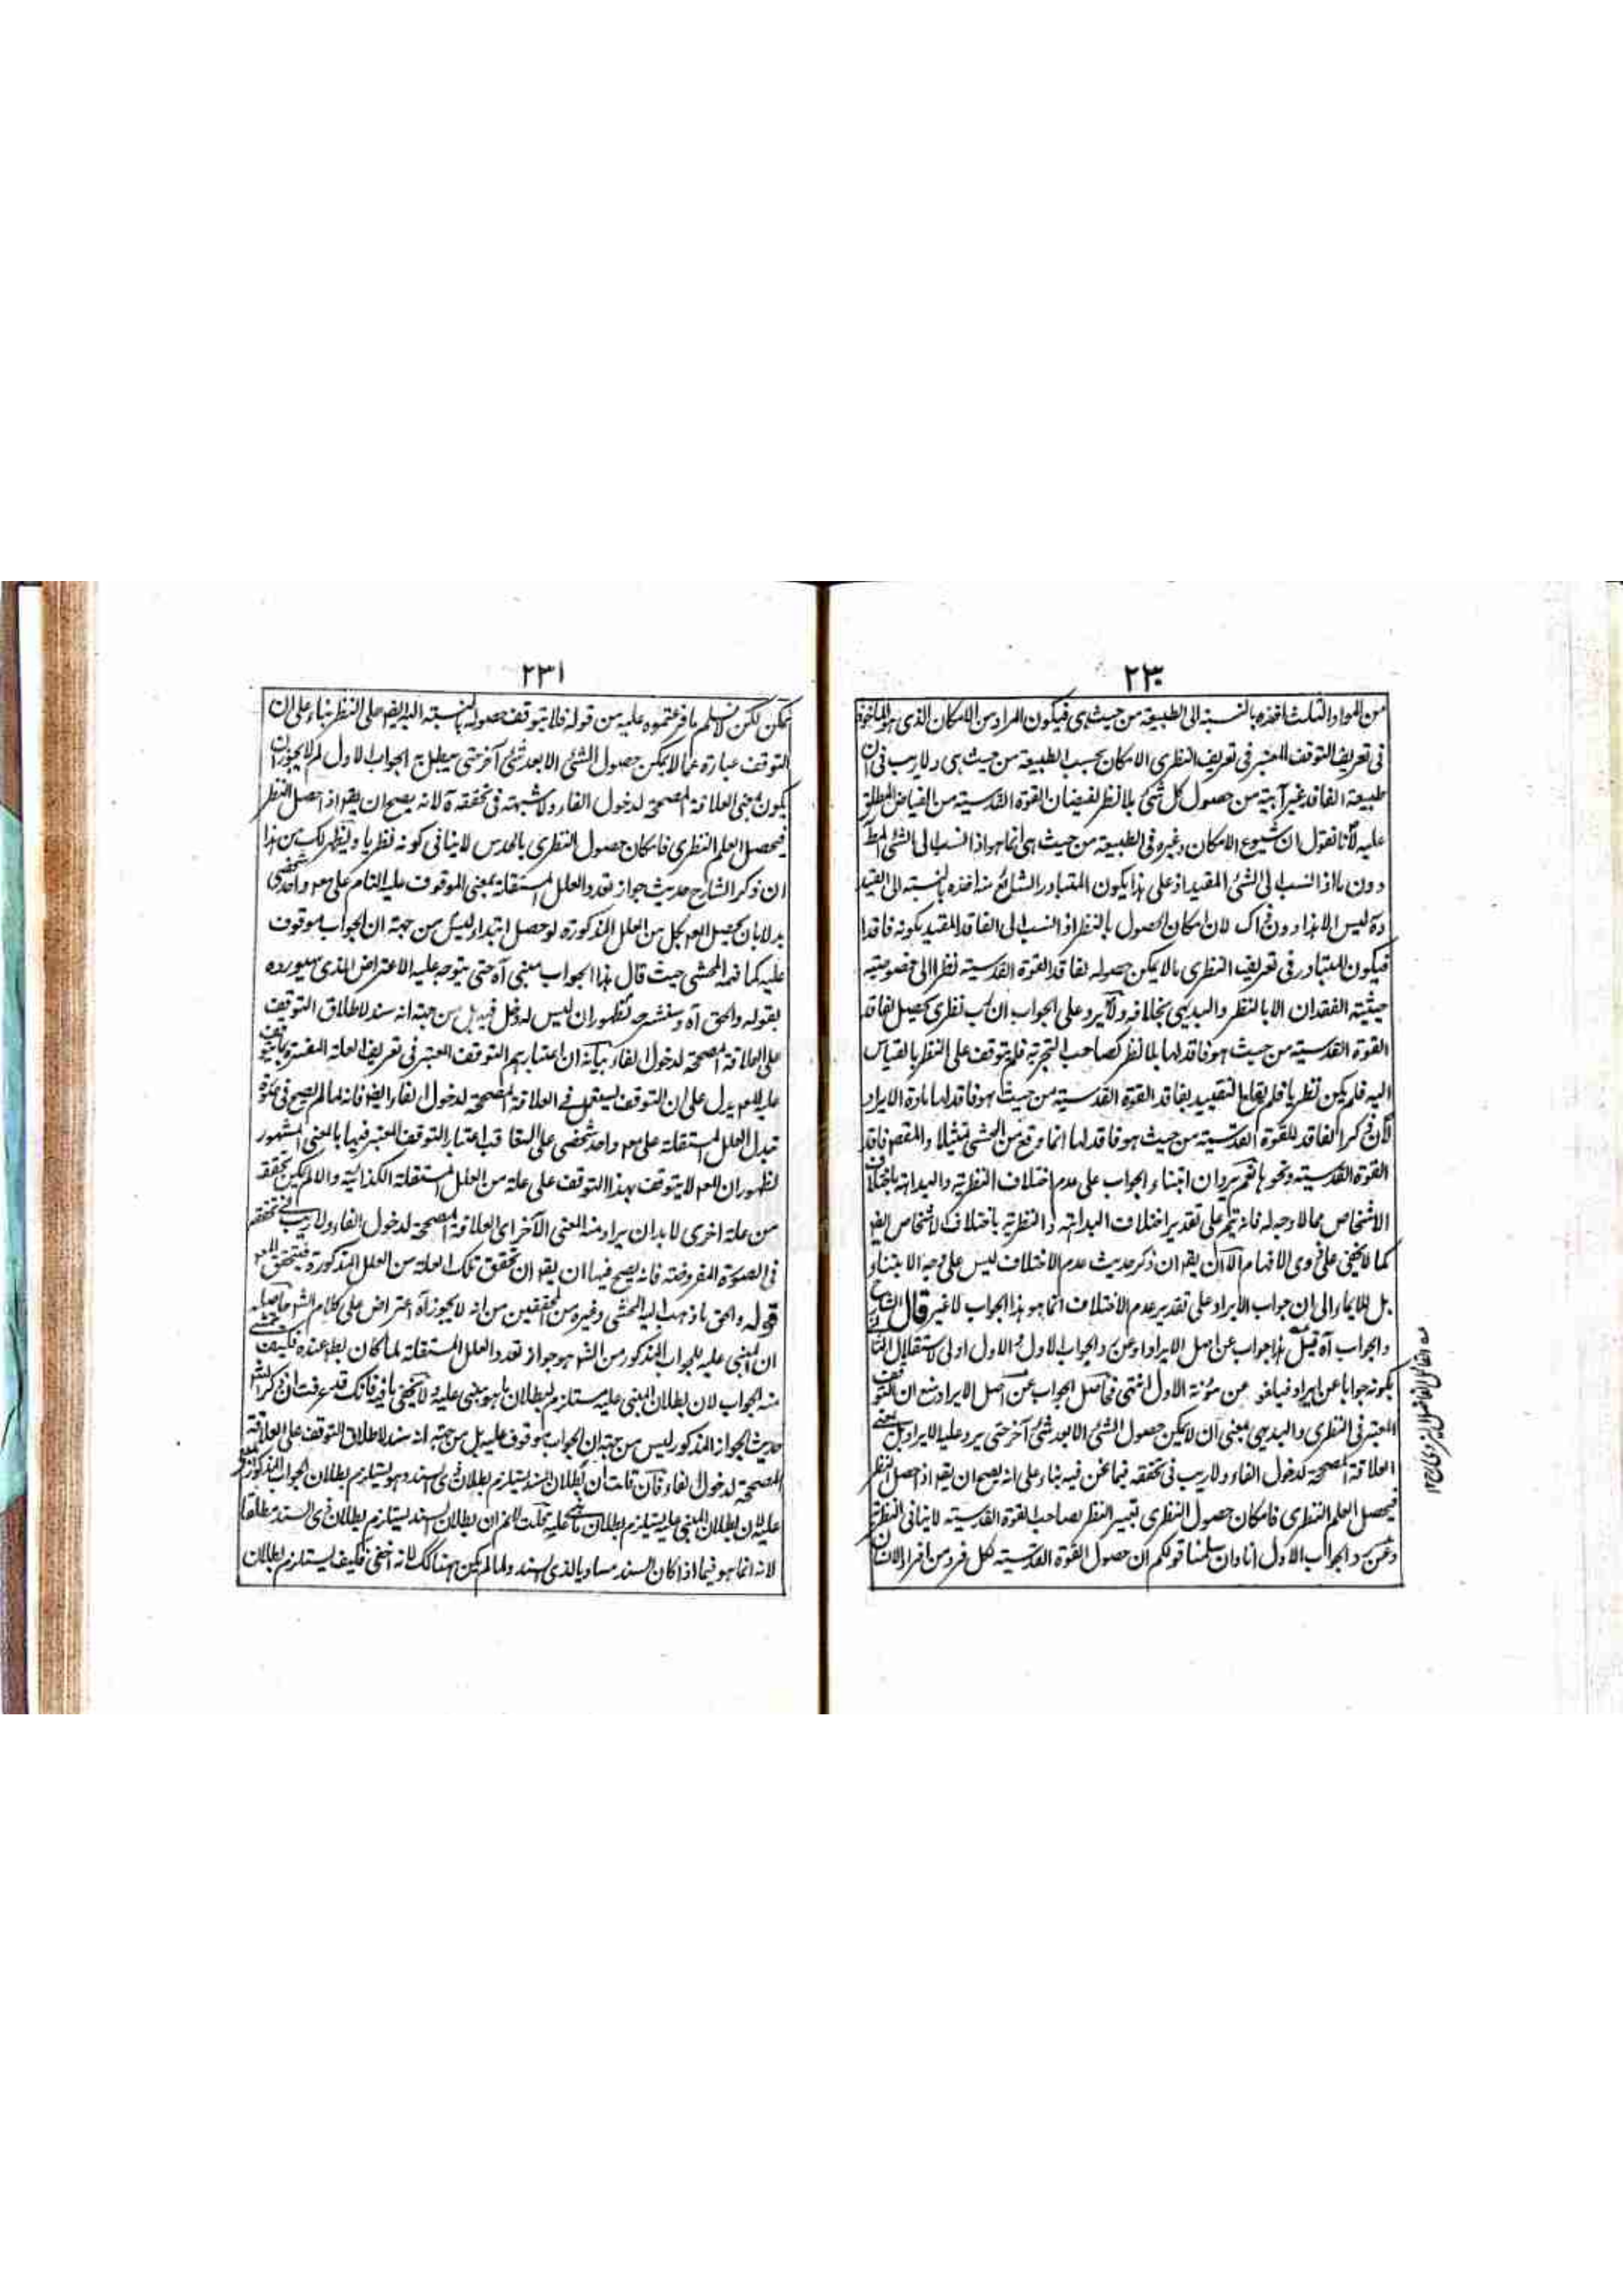 ٢٣٠
من المواد الثلث اخذه بالنسبة الى الطبيعة من حيث هى فيكون المراد من الامكان الذى هو الماخوذ
فى تعريف التوقف المعتبر فى تعريف النظرى الامكان بحسب الطبيعة من حيث هى ولا ريب فى ان
طبيعة الفاقد غير آبية من حصول كل شئ بلا نظر لفيضان القوة القدسية من الفياض المطلق
عليه لانا نقول ان شيوع الامكان وغيره فى الطبيعة من حيث هى انما هو اذا انسب الى الشئ المط
دون ما اذا انسب الى الشئ المقيد اذ على هذا يكون المتبادر الشائع منه اخذه بالنسبة الى القيد
وه ليس الا هذا دون ذاك لان امكان الحصول بالنظر اذ انسب الى الفاقد المقيد بكونه فاقدا
فيكون المتبادر فى تعريف النظرى ما لا يمكن حصوله لفاقد القوة القدسية نظرا الى خصوصية
حيثية الفقدان الا بالنظر والبديهى بخلافه ولا يرد على الجواب ان رب نظرى يحصل لفاقد
القوة القدسية من حيث هو فاقد لها بلا نظر كصاحب التجربة فلم يتوقف على النظر بالقياس
اليه فلم يكن نظريا فلم التقييد بفاقد القوة القدسية من حيث هو فاقد لها مادة الايراد
لان ذكر الفاقد للقوة القدسية من حيث هو فاقد لها انما وقع من المحشى تمثيلا والمقصود فاقد
القوة القدسية ونحوها نعم يرد ان ابتناء الجواب على عدم اختلاف النظرية والبداهة باختلاف
الاشخاص مما لا وجه له فانه يتم على تقدير اختلاف البداهة والنظرية باختلاف الاشخاص ايضا
كما لا يخفى على ذوى الافهام الا ان يقال ان ذكر حديث عدم الاختلاف ليس على وجه الابتناء
بل للايماء الى ان جواب الايراد على تقدير عدم الاختلاف انما هو هذا الجواب لا غير قال الشارح
والجواب آه قيل هذا جواب عن اصل الايراد او عن رد الجواب الاول والاول اولى لاستقلال
بكونه جوابا عن ايراد فيلغو من مؤنة الاول انتهى فحاصل الجواب عن اصل الايراد منع ان التوقف
المعتبر فى النظرى والبديهى بمعنى ان لا يمكن حصول الشئ الا بعد شئ آخر حتى يرد عليه الايراد بل بمعنى
العلاقة المصححة لدخول الفاء ولا ريب فى تحققه فيما نحن فيه بناء على انه يصح ان يقال اذ حصل النظر
فيحصل العلم النظرى فامكان حصول النظرى بغير النظر لصاحب القوة القدسية لا ينافى النظرية
وعن رد الجواب الاول انا وان سلمنا قولكم ان حصول القوة القدسية لكل فرد من افراد الانسان
٢٣١
ممكن لكن لا نسلم ما فرعتموه عليه من قوله فلا يتوقف حصوله بالنسبة اليه ايضا على النظر بناء على ان
التوقف عبارة عما لا يمكن حصول الشئ الا بعد شئ آخر حتى يبطل الجواب الاول لم لا يجوز ان
يكون بمعنى العلاقة المصححة لدخول الفاء ولا شبهة فى تحققه لانه يصح ان يقال اذا حصل النظر
فيحصل العلم النظرى فامكان حصول النظرى بالحدس لا ينافى كونه نظريا وليظهر لك من هذا
ان ذكر الشارح حديث جواز تعدد العلل المستقلة بمعنى الموقوف عليه التام على معلول واحد شخصى
بدلا بان يحصل المعلول بكل من العلل المذكورة لو حصل ابتداء ليس من جهة ان الجواب موقوف
عليه كما فهمه المحشى حيث قال هذا الجواب مبنى آه حتى يتوجه عليه الاعتراض الذى سيورده
بقوله والحق آه وسنشرحه لظهور ان ليس له دخل فيه بل من جهة انه سند لاطلاق التوقف
على العلاقة المصححة لدخول الفاء بيانه ان اعتبارهم التوقف المعتبر فى تعريف العلة المفسرة بما يتوقف
عليه المعلول يدل على ان التوقف يستعمل فى العلاقة المصححة لدخول الفاء ايضا فانه لما لم يصح فى صورة
تبدل العلل المستقلة على معلول واحد شخصى على البقاء اعتبار التوقف المعتبر فيها بالمعنى المشهور
لظهور ان المعلول لا يتوقف بهذا التوقف على علة من العلل المستقلة الكذائية والا لم يكن تحققه
من علة اخرى لا بد ان يراد منه المعنى الآخر اى العلاقة المصححة لدخول الفاء ولا ريب فى تحققه
فى الصورة المفروضة فانه يصح فيها ان يقال ان تحقق تلك العلة من العلل المذكورة فيتحقق المعلول
قوله والحق ما ذهب اليه المحشى وغيره من المحققين من انه لا يجوز آه اعتراض على كلام الشارح حاصله
ان المبنى عليه للجواب المذكور من الشارح هو جواز تعدد العلل المستقلة لما كان بطل عنده فكيف يتمشى
منه الجواب لان بطلان المبنى عليه مستلزم لبطلان ما هو مبنى عليه ولا يخفى ما فيه فانك قد عرفت ان ذكر الشارح
حديث الجواز المذكور ليس من جهة ان الجواب موقوف عليه بل من جهة انه سند لاطلاق التوقف على العلاقة
المصححة لدخول الفاء فان قلت ان بطلان السند يستلزم بطلان ذى السند وهو يستلزم بطلان الجواب المذكور المبنى
عليه لان بطلان المبنى عليه يستلزم بطلان ما بنى عليه قلت لا نم ان بطلان السند يستلزم بطلان ذى السند مطلقا
لانه انما هو فيما اذا كان السند مساويا لذى السند ولما لم يكن هنالك لانه اخفى فكيف يستلزم بطلان